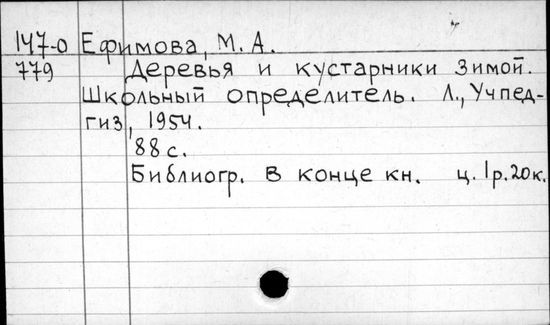 147-0 Ефимова, М. А.
779 Деревья и кустарники зимой.
Школьный определитель. Л., Учпед-
гиз, 1954.
88 с.
Библиогр. в конце кн. ц. 1р.20к.